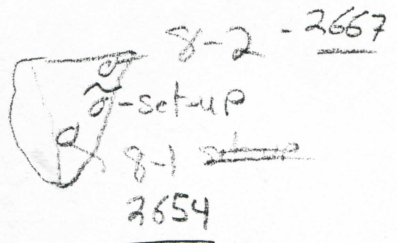 8-2 - 2667
-set-up
8-1
2654